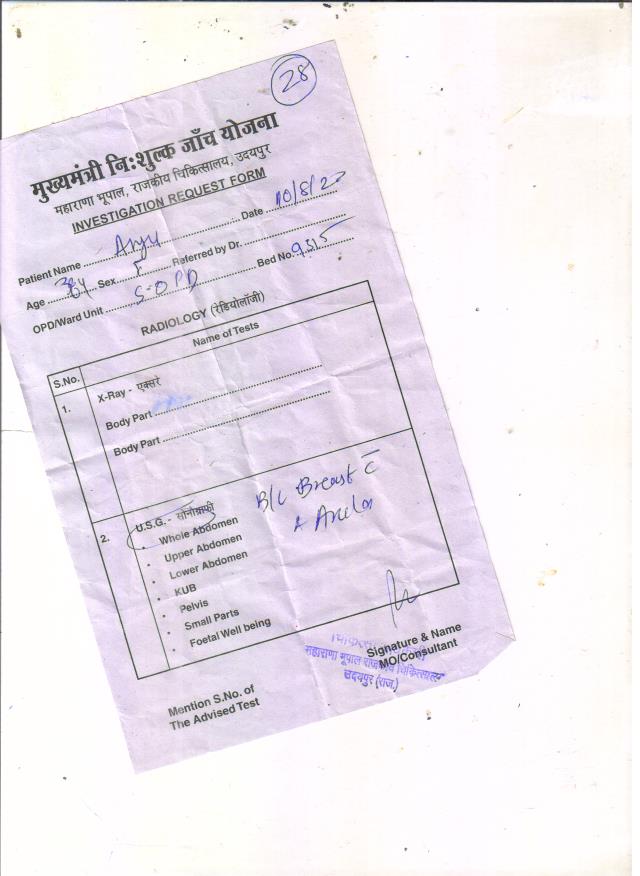 28
मुख्यमंत्री नि:शुल्क जाँच योजना
महाराणा भूपाल, राजकीय चिकित्सालय, उदयपुर
INVESTIGATION REQUEST FORM
Patient Name Anju Date 10/8/22
Age Sex F Referred by Dr.
OPD/Ward Unit S-OPD Bed No. 9515
RADIOLOGY (रेडियोलॉजी)
S.No. Name of Tests
1. X-Ray - एक्सरे
Body Part
Body Part
2. U.S.G. - सोनोग्राफी
B/L Breast c̄
• Whole Abdomen
+ Axilla
• Upper Abdomen
• Lower Abdomen
• KUB
• Pelvis
• Small Parts
• Foetal Well being
Signature & Name
MO/Consultant
महाराणा भूपाल राजकीय चिकित्सालय
उदयपुर (राज.)
Mention S.No. of
The Advised Test